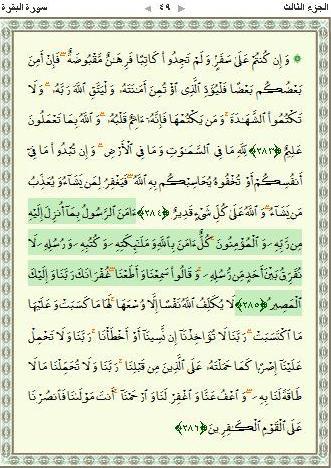 الجزء الثالث ٤٩ سورة البقرة
۞ وَإِن كُنتُمْ عَلَىٰ سَفَرٍ وَلَمْ تَجِدُوا۟ كَاتِبًا فَرِهَـٰنٌ مَّقْبُوضَةٌ ۖ فَإِنْ أَمِنَ
بَعْضُكُم بَعْضًا فَلْيُؤَدِّ ٱلَّذِى ٱؤْتُمِنَ أَمَـٰنَتَهُۥ وَلْيَتَّقِ ٱللَّهَ رَبَّهُۥ ۗ وَلَا
تَكْتُمُوا۟ ٱلشَّهَـٰدَةَ ۚ وَمَن يَكْتُمْهَا فَإِنَّهُۥٓ ءَاثِمٌ قَلْبُهُۥ ۗ وَٱللَّهُ بِمَا تَعْمَلُونَ
عَلِيمٌ ﴿٢٨٣﴾ لِّلَّهِ مَا فِى ٱلسَّمَـٰوَٰتِ وَمَا فِى ٱلْأَرْضِ ۗ وَإِن تُبْدُوا۟ مَا فِىٓ
أَنفُسِكُمْ أَوْ تُخْفُوهُ يُحَاسِبْكُم بِهِ ٱللَّهُ ۖ فَيَغْفِرُ لِمَن يَشَآءُ وَيُعَذِّبُ
مَن يَشَآءُ ۗ وَٱللَّهُ عَلَىٰ كُلِّ شَىْءٍ قَدِيرٌ ﴿٢٨٤﴾ ءَامَنَ ٱلرَّسُولُ بِمَآ أُنزِلَ إِلَيْهِ
مِن رَّبِّهِۦ وَٱلْمُؤْمِنُونَ ۚ كُلٌّ ءَامَنَ بِٱللَّهِ وَمَلَـٰٓئِكَتِهِۦ وَكُتُبِهِۦ وَرُسُلِهِۦ لَا
نُفَرِّقُ بَيْنَ أَحَدٍ مِّن رُّسُلِهِۦ ۚ وَقَالُوا۟ سَمِعْنَا وَأَطَعْنَا ۖ غُفْرَانَكَ رَبَّنَا وَإِلَيْكَ
ٱلْمَصِيرُ ﴿٢٨٥﴾ لَا يُكَلِّفُ ٱللَّهُ نَفْسًا إِلَّا وُسْعَهَا ۚ لَهَا مَا كَسَبَتْ وَعَلَيْهَا
مَا ٱكْتَسَبَتْ ۗ رَبَّنَا لَا تُؤَاخِذْنَآ إِن نَّسِينَآ أَوْ أَخْطَأْنَا ۚ رَبَّنَا وَلَا تَحْمِلْ
عَلَيْنَآ إِصْرًا كَمَا حَمَلْتَهُۥ عَلَى ٱلَّذِينَ مِن قَبْلِنَا ۚ رَبَّنَا وَلَا تُحَمِّلْنَا مَا لَا
طَاقَةَ لَنَا بِهِۦ ۖ وَٱعْفُ عَنَّا وَٱغْفِرْ لَنَا وَٱرْحَمْنَآ ۚ أَنتَ مَوْلَىٰنَا فَٱنصُرْنَا
عَلَى ٱلْقَوْمِ ٱلْكَـٰفِرِينَ ﴿٢٨٦﴾